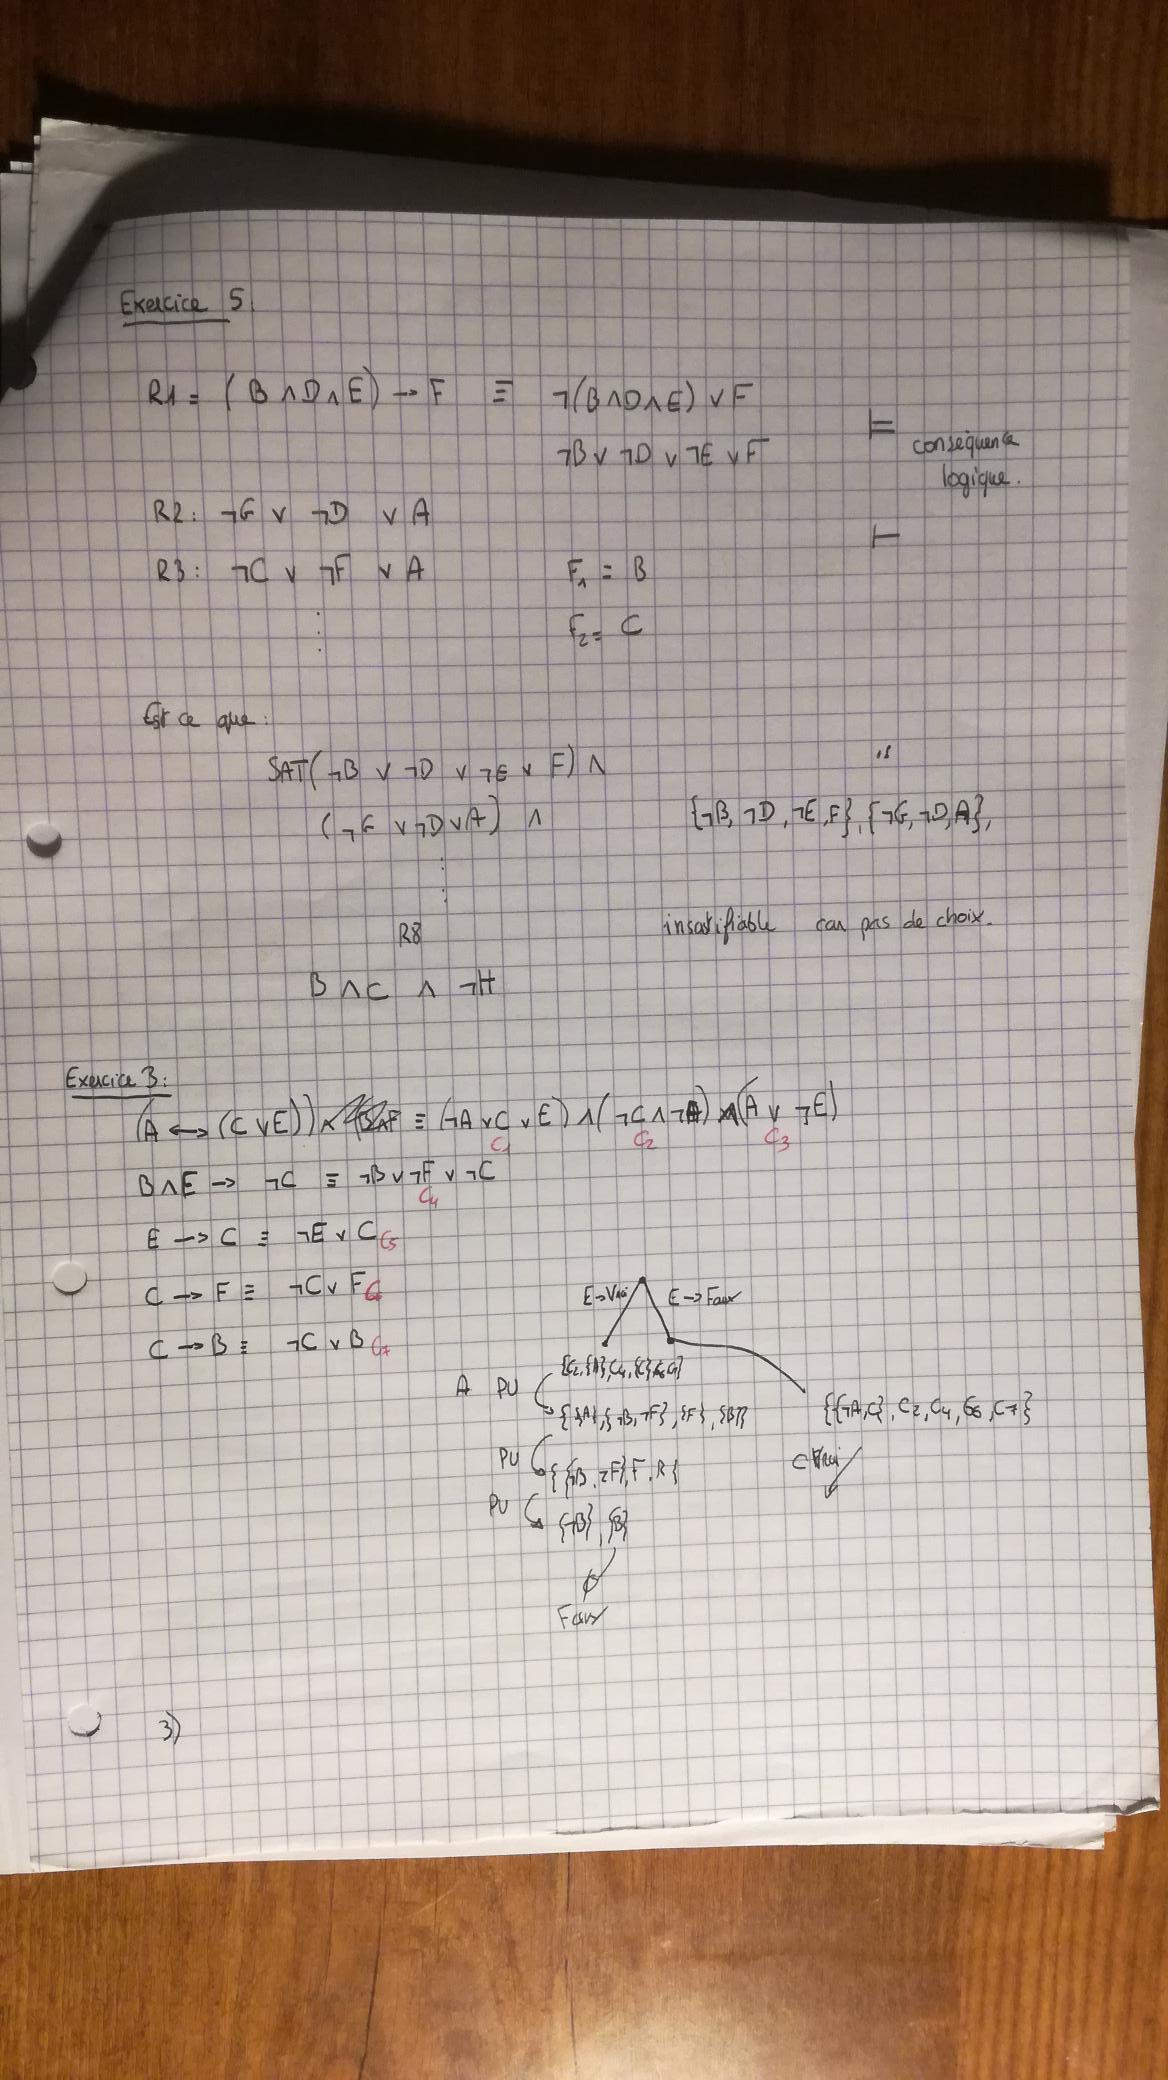 Exercice 5:
R1 = (B ∧ D ∧ E) → F ≡ ¬(B ∧ D ∧ E) ∨ F
¬B ∨ ¬D ∨ ¬E ∨ F
⊨ conséquence
logique.
R2: ¬G ∨ ¬D ∨ A
⊢
R3: ¬C ∨ ¬F ∨ A
F₁ = B
F₂ = C
Est ce que:
SAT(¬B ∨ ¬D ∨ ¬E ∨ F) ∧
(¬G ∨ ¬D ∨ A) ∧
{¬B, ¬D, ¬E, F}, {¬G, ¬D, A},
R8
insatifiable car pas de choix.
B ∧ C ∧ ¬H
Exercice 3:
(A ↔ (C ∨ E)) ≡ (¬A ∨ C ∨ E) ∧ (¬C ∧ ¬A) ∧ (A ∨ ¬E)
C₁ C₂ C₃
B ∧ E → ¬C ≡ ¬B ∨ ¬F ∨ ¬C
C₄
E → C ≡ ¬E ∨ C C₅
C → F ≡ ¬C ∨ F C₆
C → B ≡ ¬C ∨ B C₇
E → Vrai E → Faux
{C₂, {A}, C₄, {C}, C₆, C₇}
A PU
{{A}, {¬B, ¬F}, {F}, {B}}
{{¬A, C}, C₂, C₄, C₆, C₇}
PU
{{¬B, ¬F}, F, B}
C Vrai
PU
{¬B}, {B}
∅
Faux
3)